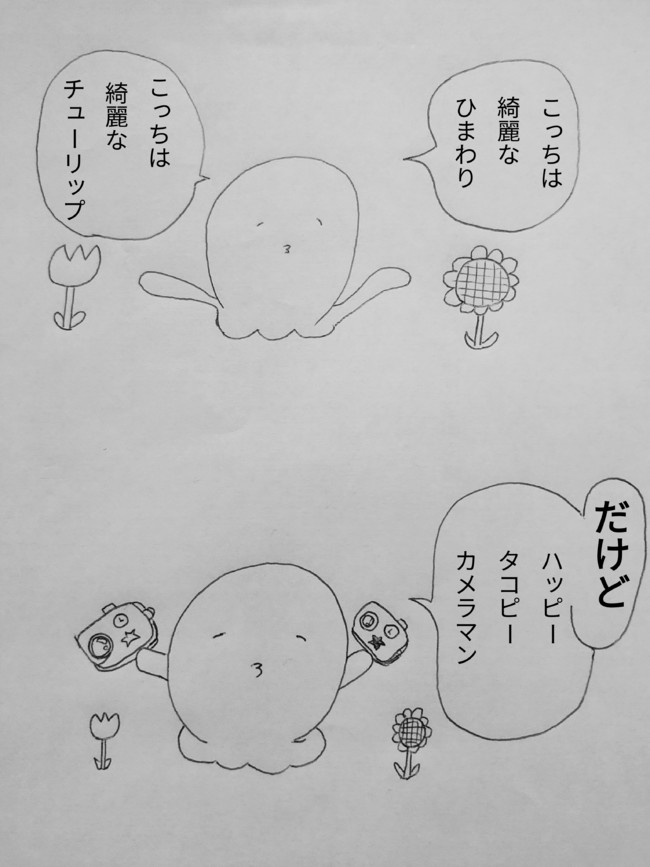 こっちは
綺麗な
ひまわり
こっちは
綺麗な
チューリップ
だけど
ハッピー
タコピー
カメラマン